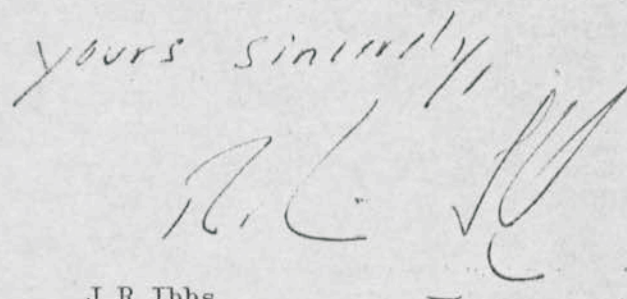 yours sincerely,
J R Ibbs